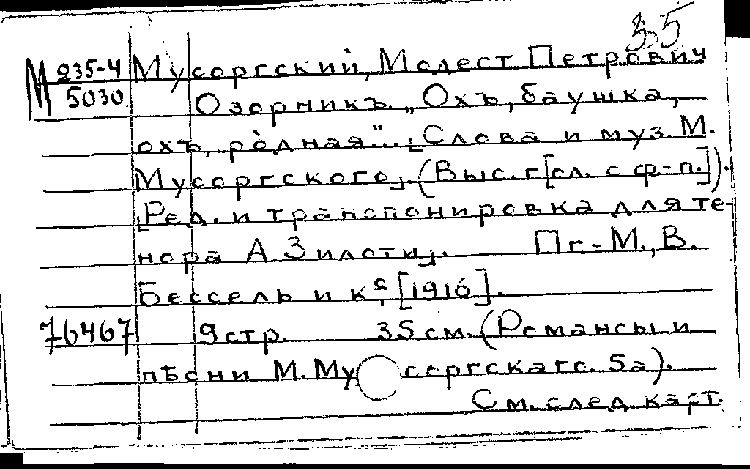 35
М 235-4 Мусоргский, Модест Петрович
5030 Озорникъ „Охъ, баушка,
охъ, родная"... [Слова и муз. М.
Мусоргского]. (Выс. г[ол. с ф-п.]).
[Ред. и транспонировка для те-
нора А. Зилоти]. Пг.-М., В.
Бессель и кº, [1916].
76467 9 стр. 35 см. (Романсы и
пѣсни М. Мусоргскаго. 5а).
См. след. карт.